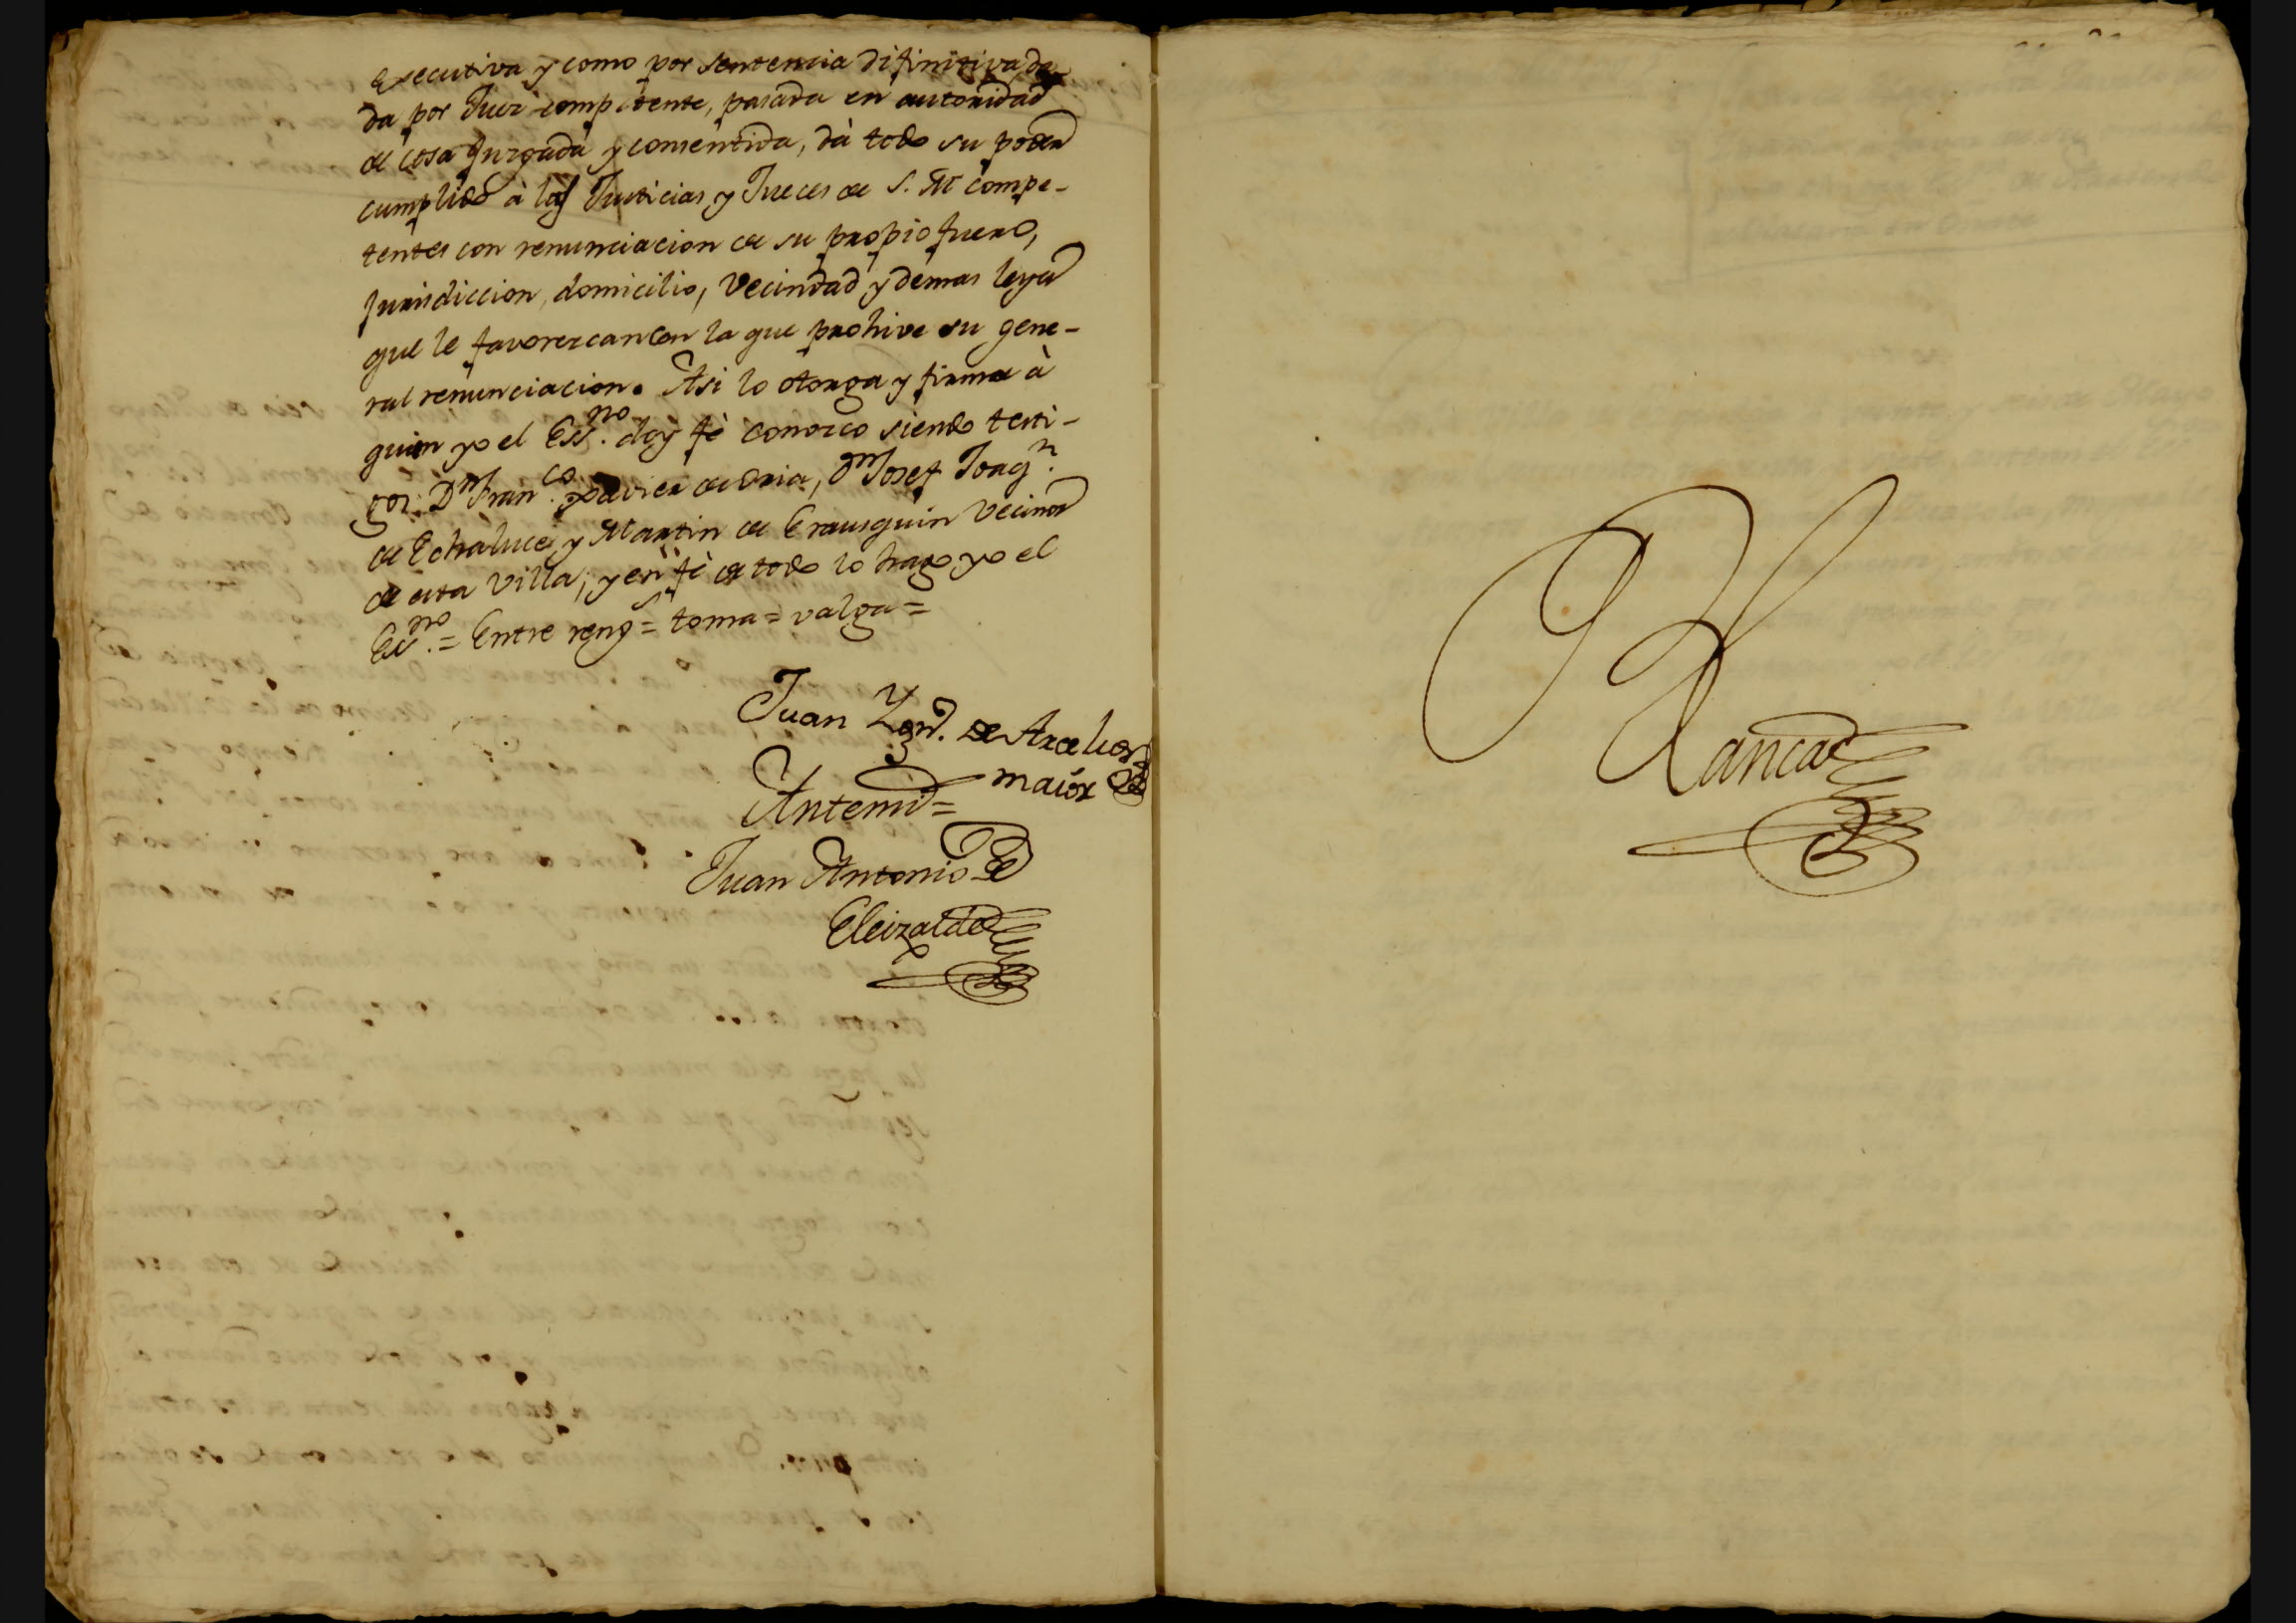 executiva y como por sentencia difinitiva da
da por Juez competente, pasada en autoridad
de cosa Juzgada y consentida, dà todo su poder
cumplido à las Justicias y Jueces de S. M. compe-
tentes con renunciacion de su propio fuero,
Jurisdiccion, domicilio, Vecindad y demas leyes
que le favorezcan con la que prohive su gene-
ral renunciacion. Asi lo otorga y firma à
quien yo el Ess.no doy fè conozco siendo testi-
gos: Dn Fran.co Xavier de Oria, Dn Josef Joaqn.
de Echaluce y Martin de Erausquin Vecinos
de esta Villa; y en fè de todo lo hago yo el
Ess.no = Entre rengs = toma = valga =
Juan de Ardelus
maior
Antemi =
Juan Antonio De
Eleizalde
Blanca